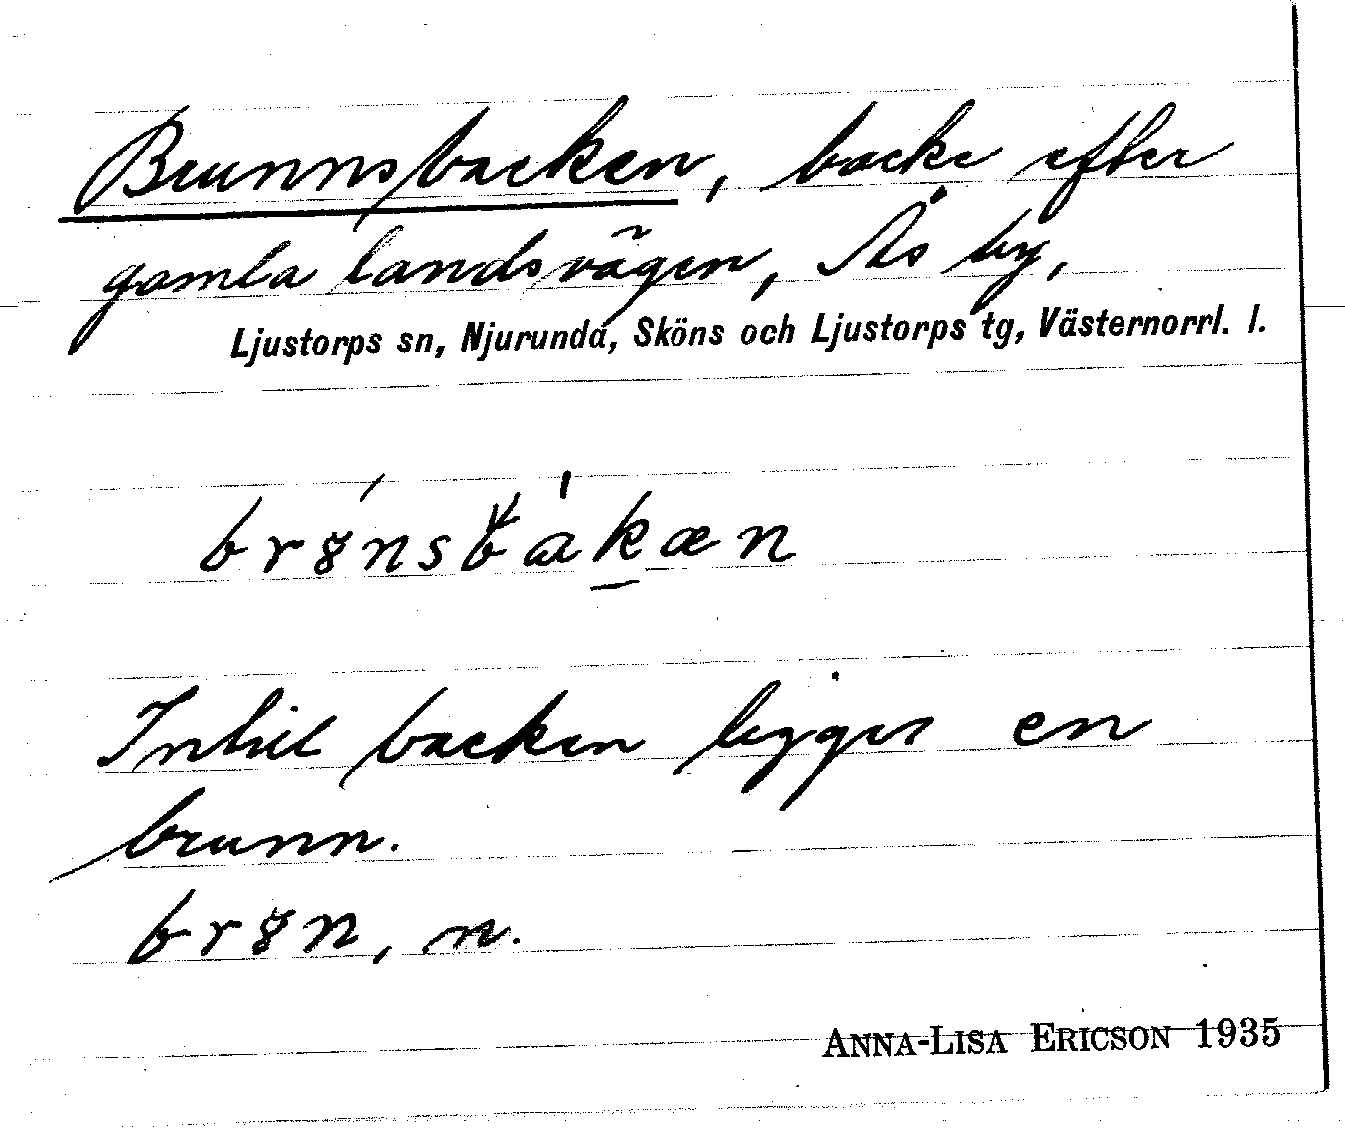 Brunnsbacken, backe efter
gamla landsvägen, Ås by,
Ljustorps sn, Njurunda, Sköns och Ljustorps tg, Västernorrl. l.
brꞩnsbakæn
Intill backen ligger en
brunn.
br8n, n.
ANNA-LISA ERICSON 1935